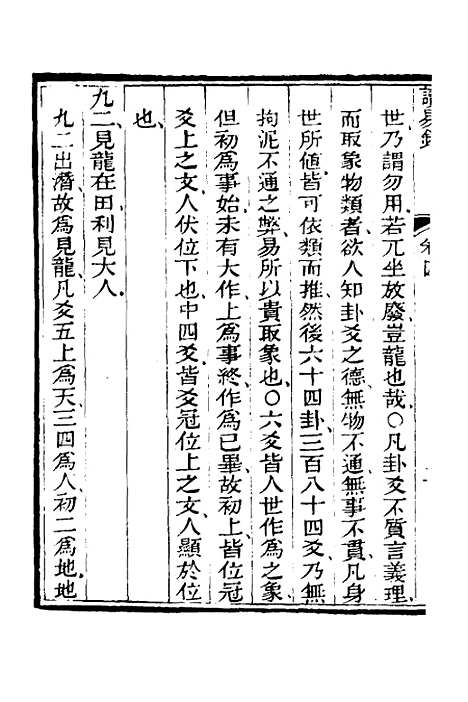 世乃謂勿用若兀坐放廢豈龍也哉○凡卦爻不質言義理
而取象物類者欲人知卦爻之德無物不通無事不貫凡身
世所值皆可依類而推然後六十四卦三百八十四爻乃無
拘泥不通之弊易所以貴取象也○六爻皆人世作為之象
但初為事始未有大作上為事終作為已畢故初上皆位冠
爻上之文人伏位下也中四爻皆爻冠位上之文人顯於位
也
九二見龍在田利見大人
九二出潛故為見龍凡爻五上為天三四為人初二為地地